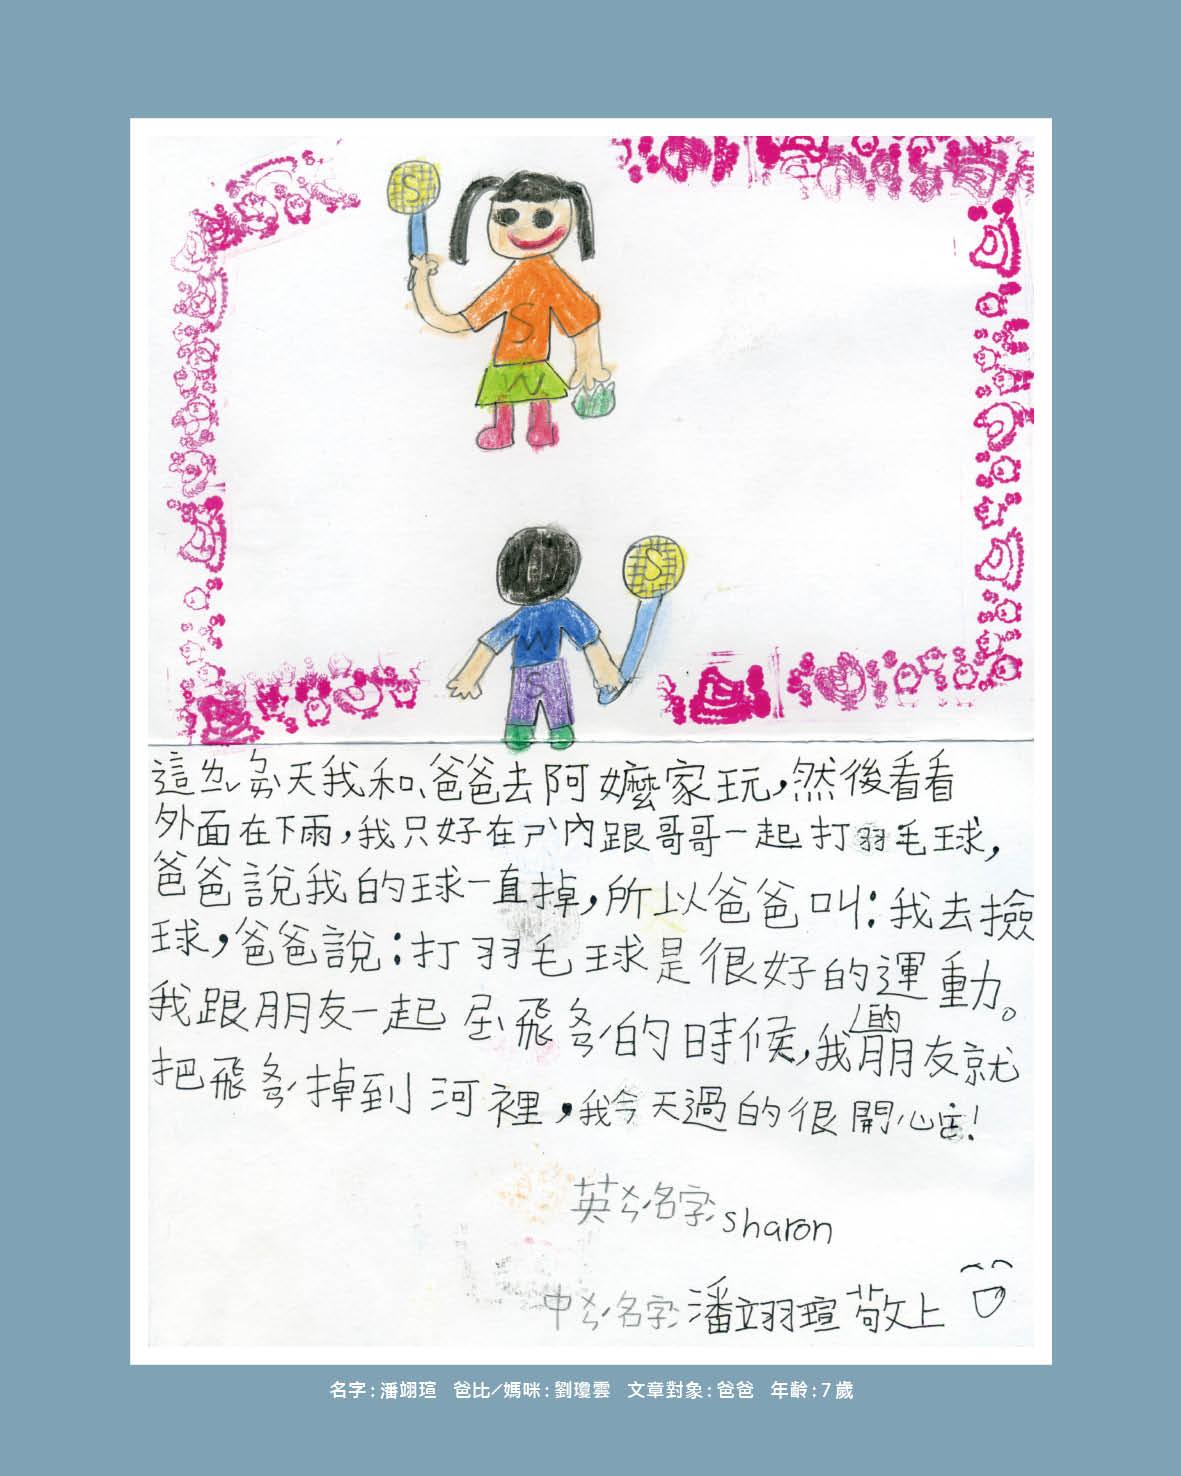 S
S
W
W
S
S
這ㄌㄟˇㄅㄢˋ天我和爸爸去阿嬤家玩,然後看看
外面在下雨,我只好在ㄕˋ內跟哥哥一起打羽毛球,
爸爸說我的球一直掉,所以爸爸叫:我去撿
球,爸爸說:打羽毛球是很好的運動。
我跟朋友一起 飛ㄆㄢˊ的時候,我的朋友就
把飛ㄆㄢˊ掉到河裡,我今天過的很開心!
英ㄨㄣˊ名字sharon
中ㄨㄣˊ名字潘翊瑄敬上
名字:潘翊瑄 爸比/媽咪:劉瓊雲 文章對象:爸爸 年齡:7歲